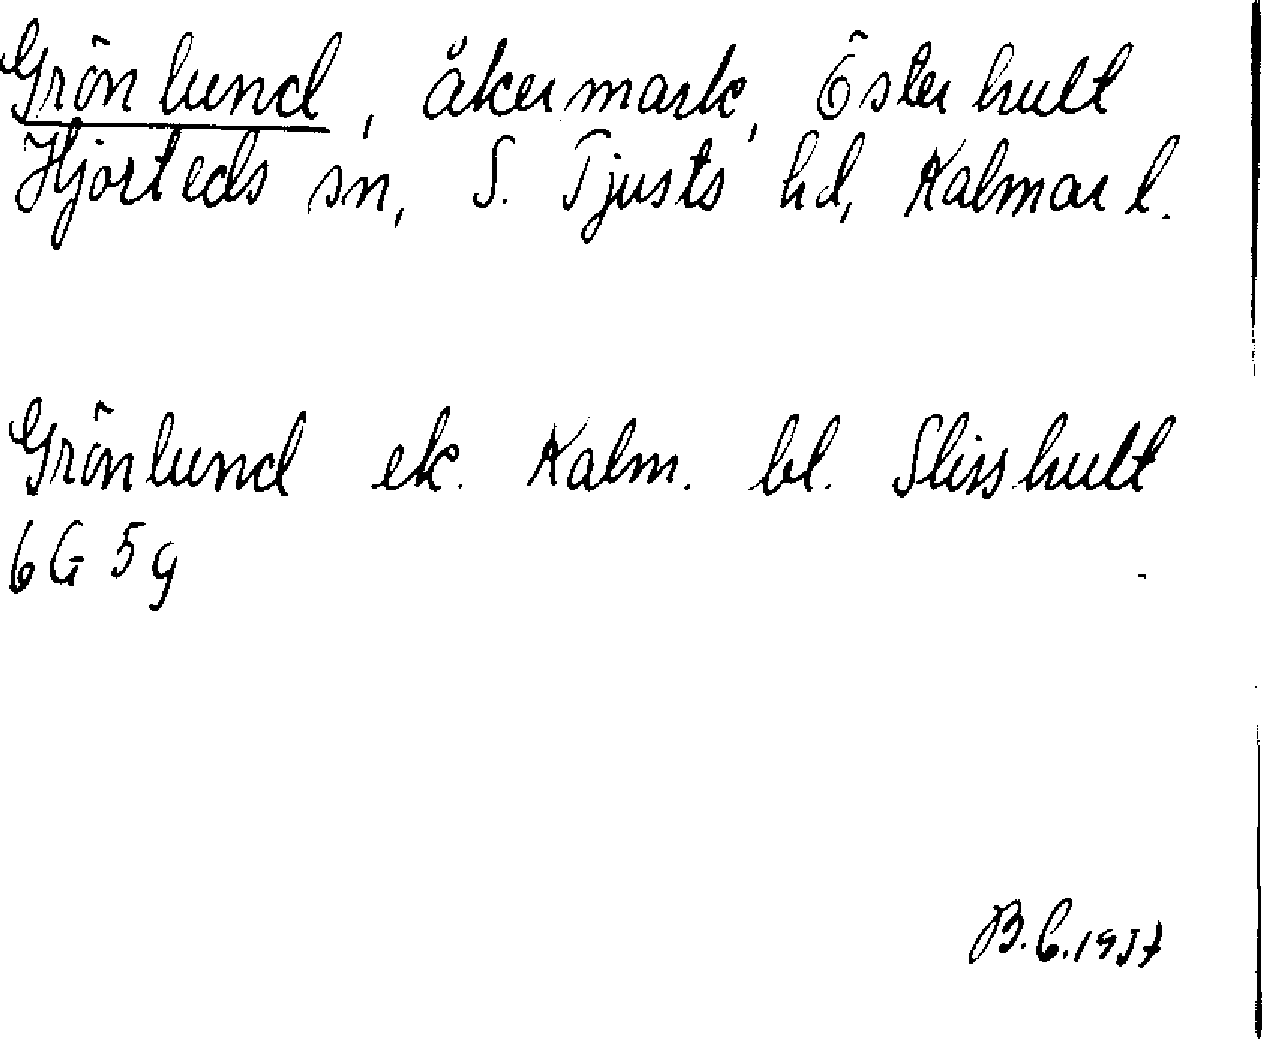 Grönlund, åkermark, Österhult
Hjorteds sn, S. Tjusts hd, Kalmar l.
Grönlund ek. Kalm. bl. Slisshult
6G 5g
B.C. 1957